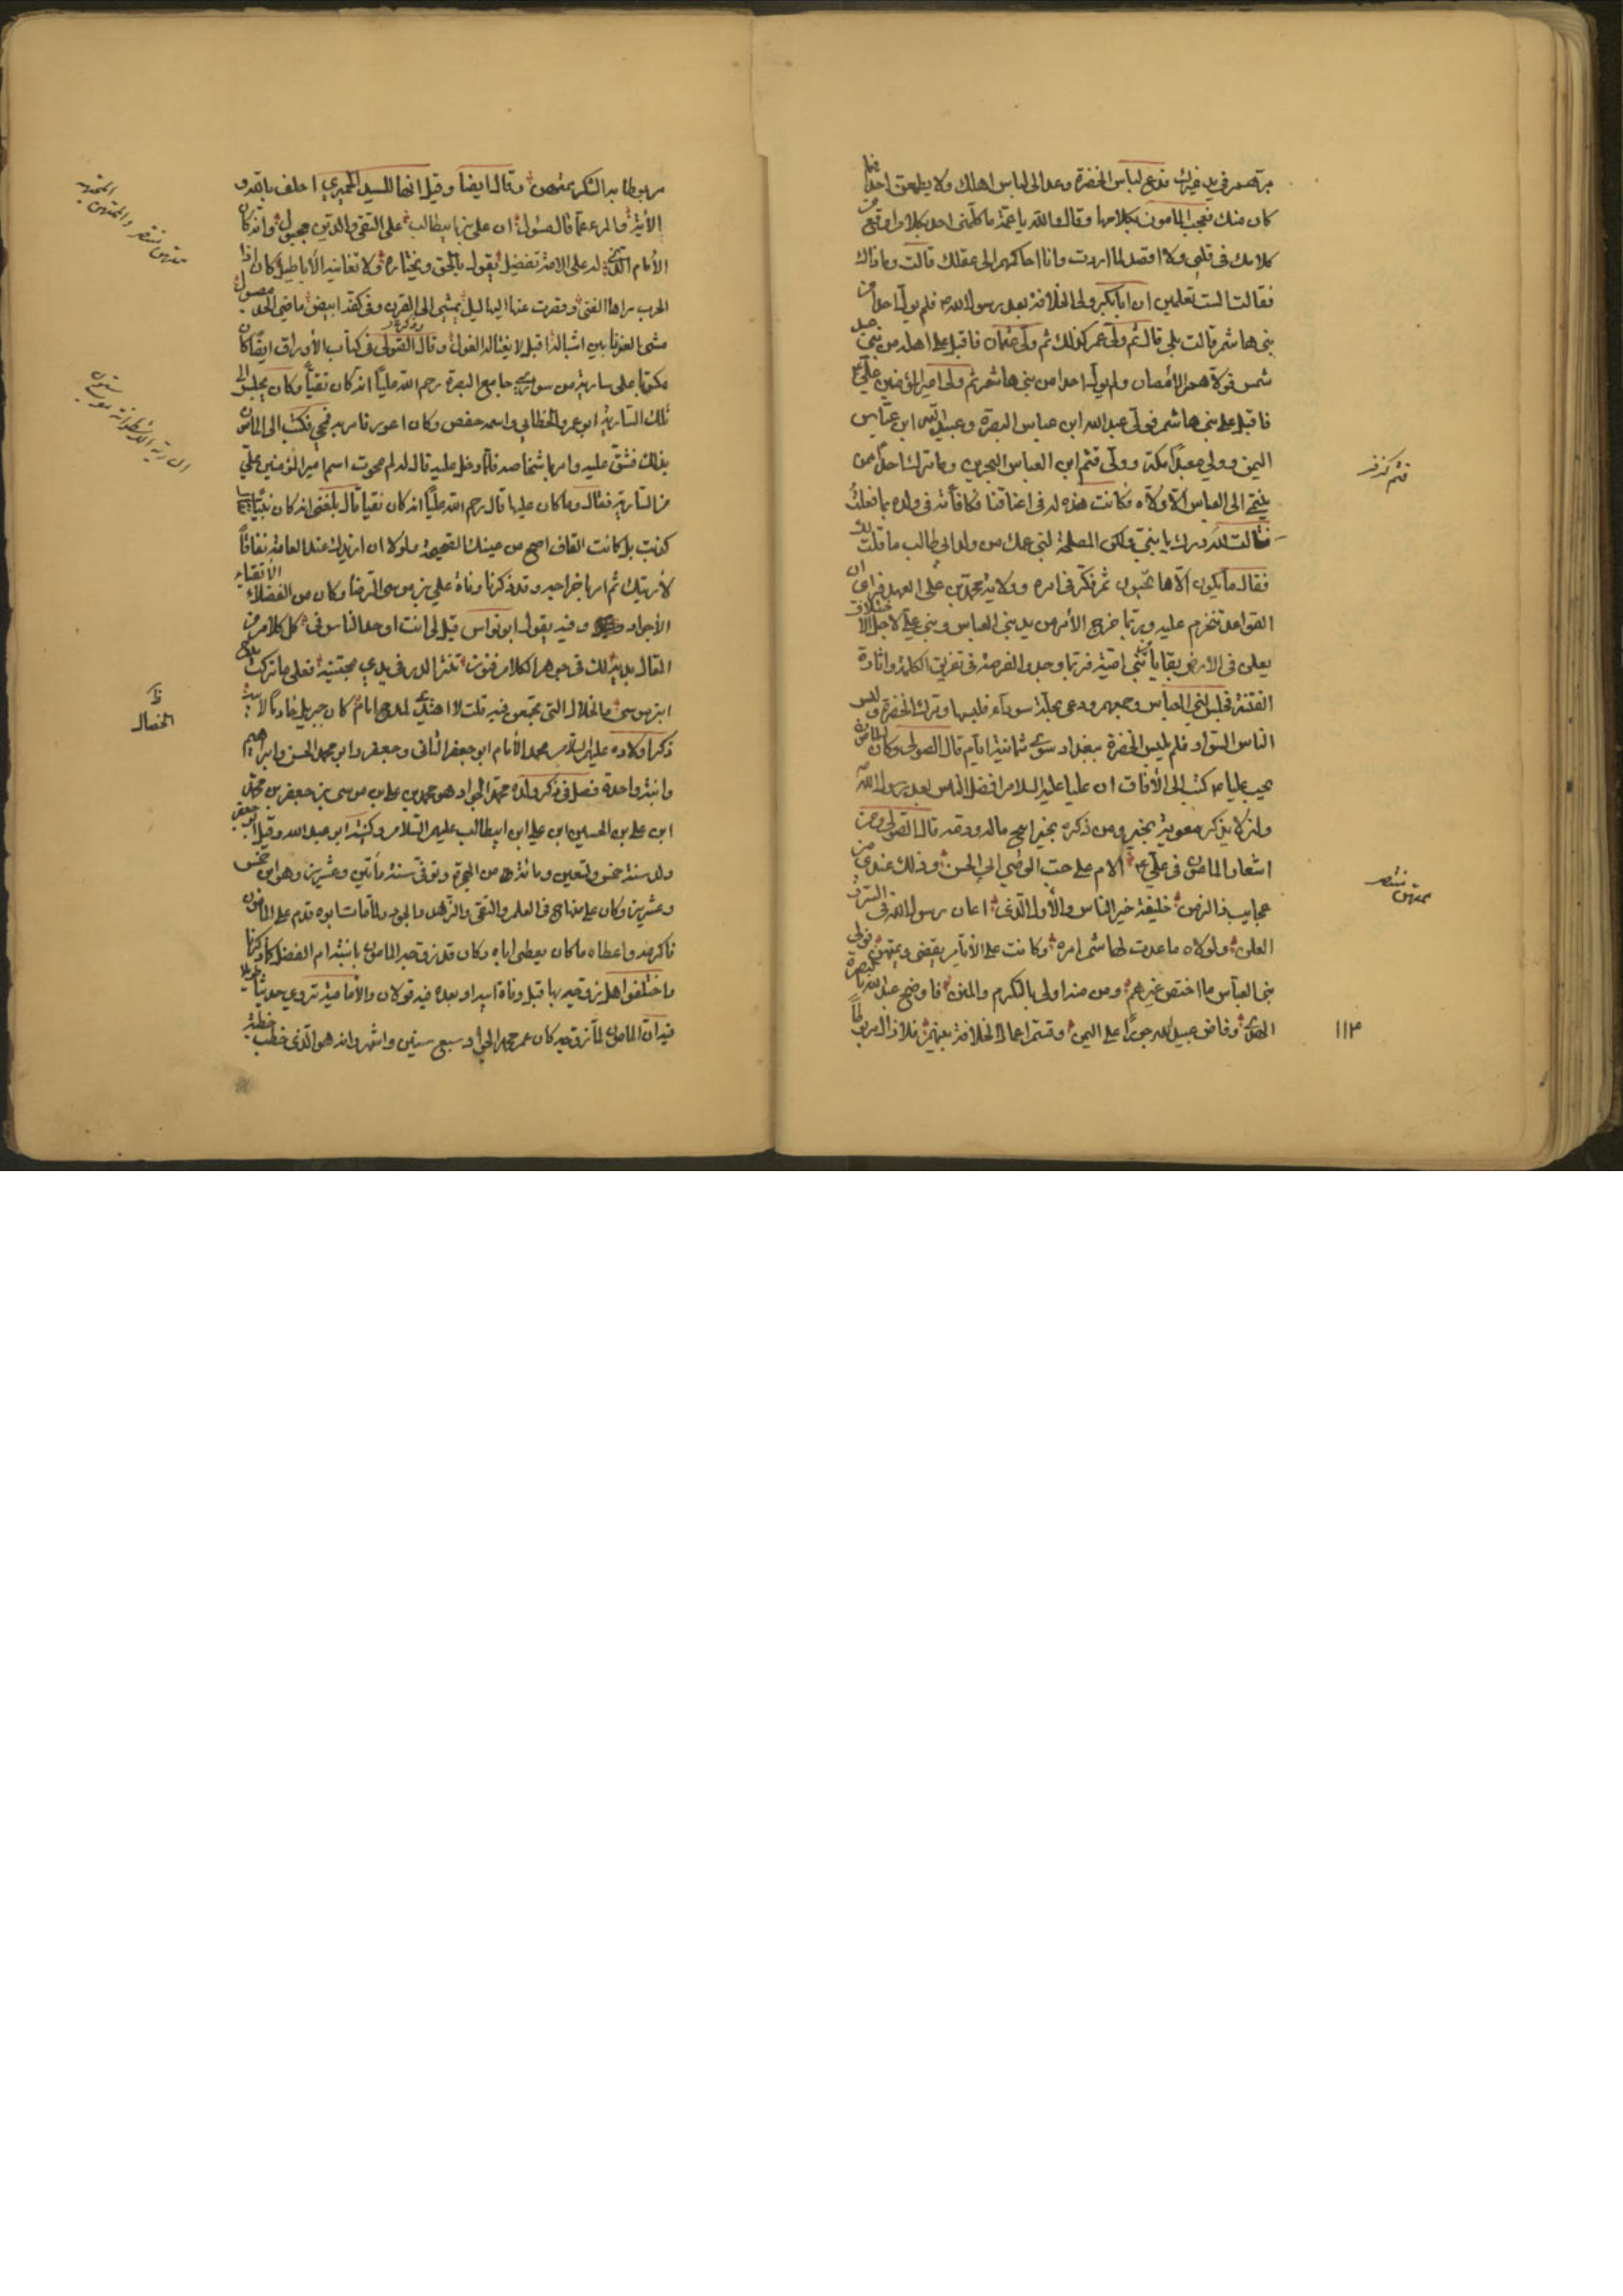 من تصير في يد غيرك فدع لباس الخضرة وعد الى لباس اهلك ولا يطمعن احد فيما
كان منك فعجب المامون بكلامها وقال والله يا عمة ما كلمنى احد بكلام اوقع من
كلامك فى قلبى ولا اقصد لما اردت وانا احاكمهم الى عقلك قالت وما ذاك
فقال الست تعلمين ان ابا بكر ولى الخلافة بعد رسول الله ص فلم يول احدا من
بنى هاشم قالت بلى قال ثم ولى عمر كذلك ثم ولى عثمان فاقبل على اهله من بنى عبد
شمس فولاهم الامصار ولم يول احدا من بنى هاشم ثم ولى امير المؤمنين على ع
فاقبل على بنى هاشم فولى عبد الله ابن عباس البصرة وعبيد الله ابن عباس
اليمن وولى معبدا مكة وولى قثم ابن العباس البحرين وما ترك احدا ممن
ينتمى الى العباس الا ولاه فكانت هذه له فى اعناقنا فكافأته فى ولده بما فعلت
فقالت لله درك يا بنى ولكن المصلحة لبنى عمك من ولد ابى طالب ما قلت لك
فقال ما يكون الا ما تحبون ثم فكر فى امره وولاية محمد بن على العهد فراى ان
القواعد تنخرم عليه وربما خرج الأمر من يد بنى العباس وبنى على لاجل الاختلاف
يعلى فى الارض بقايا بنى امية فربما وجدوا الفرصة فى تفريق الكلمة واثارة
الفتنة فجلس لبنى العباس وجمعهم ودعى بحلة سوداء فلبسها وترك الخضرة ولبس
الناس السواد فلم يلبس الخضرة ببغداد سوى ثمانية ايام قال الصولى وكان المامون
يحب عليا ع كتب الى الآفاق ان عليا عليه السلام افضل الناس بعد رسول الله ص
وان لا يذكر معوية بخير ومن ذكره بخير ابيح ماله ودمه قال الصولى ومن
اشعار المامون فى على ع الام على حب الوصى ابى الحسن وذلك عندى من
عجايب ذا الزمن خليفة خير الناس والأول الذى اعان رسول الله فى السر و
العلن ولولاه ما عدت لهاشم امرة وكانت على الأيام تقضى وتمتهن فولى
بنى العباس ما اختص غيرهم ومن منه اولى بالتكرم والمنن فاوضح عبد الله بالبصرة
الهدى وفاض عبيد الله جودا على اليمن وقسم اعمال الخلافة بينهم فلا زال مربوطا
قثم كزفر
تمتهن تنتصر
١١٣
مربوطا به الشكر مرتهن وقال ايضا وقيل انها للسيد الحميرى احلف بالله و
الأيه والمرء عما قال مسئول ان على بن ابيطالب على التقى والدين مجبول وانه كان
الأمام الذى له على الامة تفضيل يقول بالحق ويختاره ولا تعانيه الأباطيل كان اذا
الحرب مراها الفتى وفقرت عنها البهاليل يمشى الى القرن وفى كفه ابيض ماضى الحد مصول
مشى العفرنا بين اشباله اقبل لا يغتاله الغول وقال الصولى فى كتاب الأوراق ايضا كان
مكتوبا على سارية من سوارى جامع البصرة رحم الله عليا انه كان تقيا وكان يجلس الى
تلك السارية ابو عمرو الخطابى واسمه حفص وكان اعور فامر به فمحى فكتب الى المامون
بذلك فشق عليه وامر باشخاصه فلما دخل عليه قال له لم محوت اسم امير المؤمنين على
من السارية فقال وما كان عليها قال رحم الله عليا انه كان تقيا قال بلغنى انه كان نبيا
كذبت بل كانت القاف اصح من عينك الصحيحة ولولا ان ازيدك عند العامة نفاقا
لأدبتك ثم امر باخراجه وقد ذكرنا وفاة على بن موسى الرضا وكان من الفضلاء الأتقياء
الأجواد وفيه يقول ابو نواس قيل لى انت اوحد الناس فى كل كلام من
المقال بديه لك فى جوهر الكلام فنون تنثر الدر فى يدى مجتنيه فعلى ما تركت مدح
ابن موسى والخلال التى تجمعن فيه قلت لا اهتدى لمدح امام كان جبريل خادما لأبيه
ذكر اولاده عليهم السلام محمد الأمام ابو جعفر الثانى وجعفر وابو محمد الحسن وابراهيم
وابنة واحدة فصل فى ذكر ولده محمد الجواد هو محمد بن على بن موسى بن جعفر بن محمد
ابن على بن الحسين ابن على ابن ابيطالب عليهم السلام وكنيته ابو عبد الله وقيل ابو جعفر
ولد سنة خمس وتسعين ومائة من الهجرة وتوفى سنة مأتين وعشرين وهو ابن خمس
وعشرين وكان على منهاج ابيه فى العلم والتقى والزهد والجود ولما مات ابوه قدم على المامون
فاكرمه واعطاه ما كان يعطى اباه وكان قد زوجه المامون بابنته ام الفضل كما ذكرنا
واختلفوا هل زوجه بها قبل وفاة ابيه او بعده فيه قولان والأمامية تروى حديثا طويلا
فيه ان المامون لما زوجه كان عمر محمد الجواد سبع سنين واشهر وانه هو الذى خطب خطبة
تمتهن تنتصر والمتهن
السارية الاسطوانة سوارى ستون
الخصال